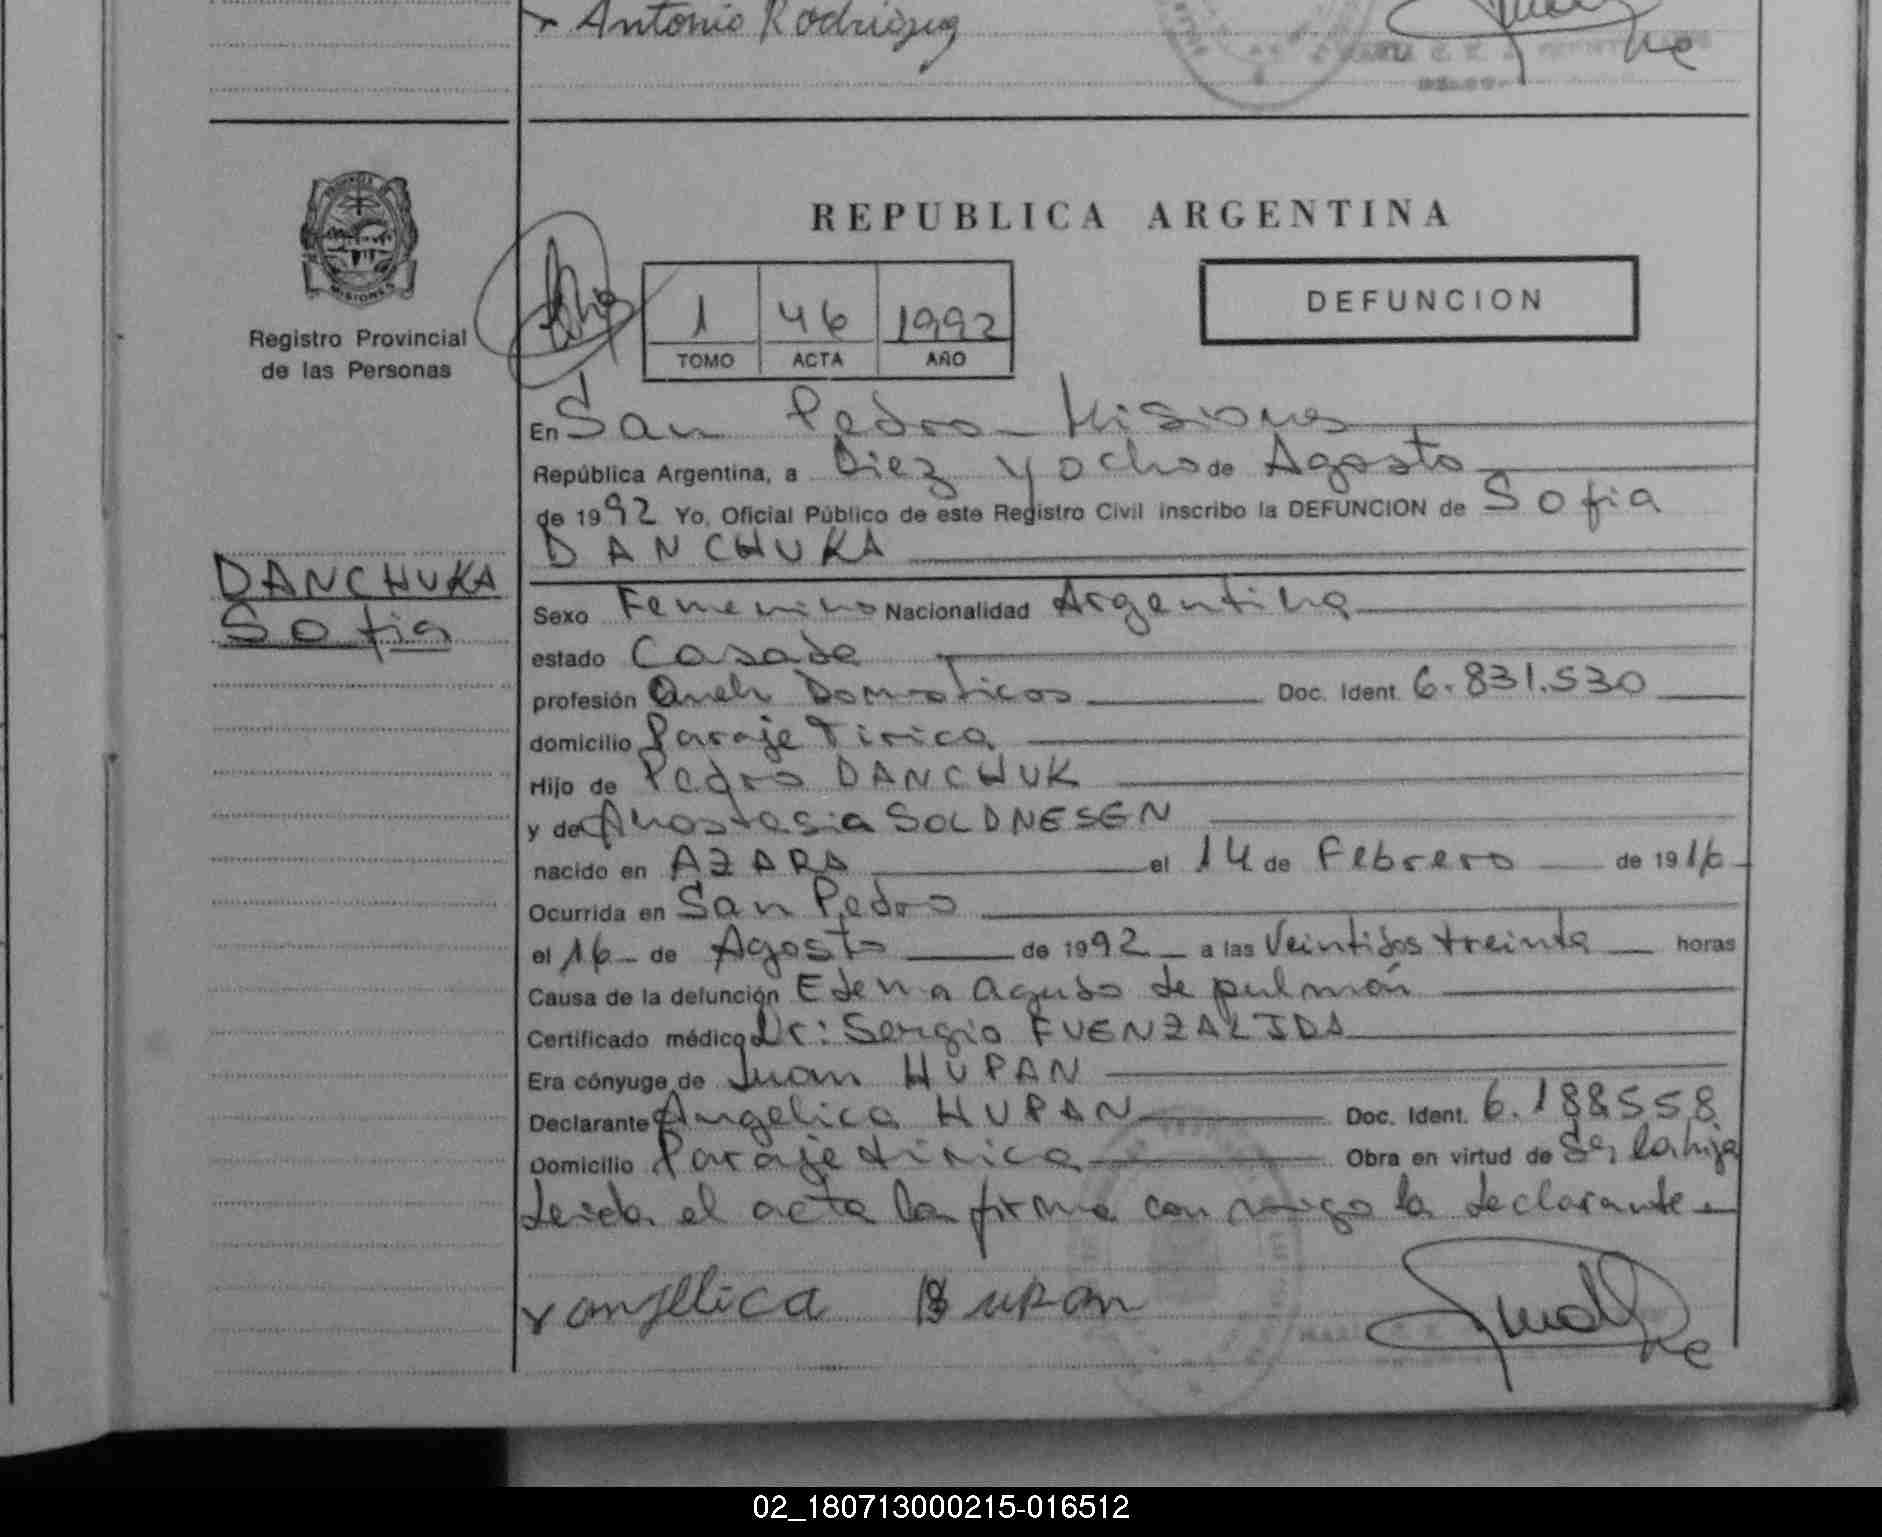 Antonio Rodriguez
REPUBLICA ARGENTINA
PROVINCIA
MISIONES
Registro Provincial
de las Personas
1 46 1992
TOMO ACTA AÑO
DEFUNCION
En San Pedro - Misiones
República Argentina, a Diez y ocho de Agosto
de 1992 Yo, Oficial Público de este Registro Civil inscribo la DEFUNCION de Sofia
DANCHUKA
DANCHUKA
Sofia
Sexo Femenino Nacionalidad Argentina
estado Casada
profesión Domesticos Doc. Ident. 6.831.530
domicilio Paraje Tirica
Hijo de Pedro DANCHUK
y de Anastasia SOLDNESEN
nacido en AZARA el 14 de Febrero de 1916
Ocurrida en San Pedro
el 16 de Agosto de 1992 a las Veintidos treinta horas
Causa de la defunción Edema agudo de pulmón
Certificado médico Dr: Sergio FUENZALIDA
Era cónyuge de Juan HUPAN
Declarante Angelica HUPAN Doc. Ident. 6.188558
Domicilio Paraje tirica Obra en virtud de Ser la hija
Leida el acta la firma con migo la declarante
x angelica Bupan
02_180713000215-016512